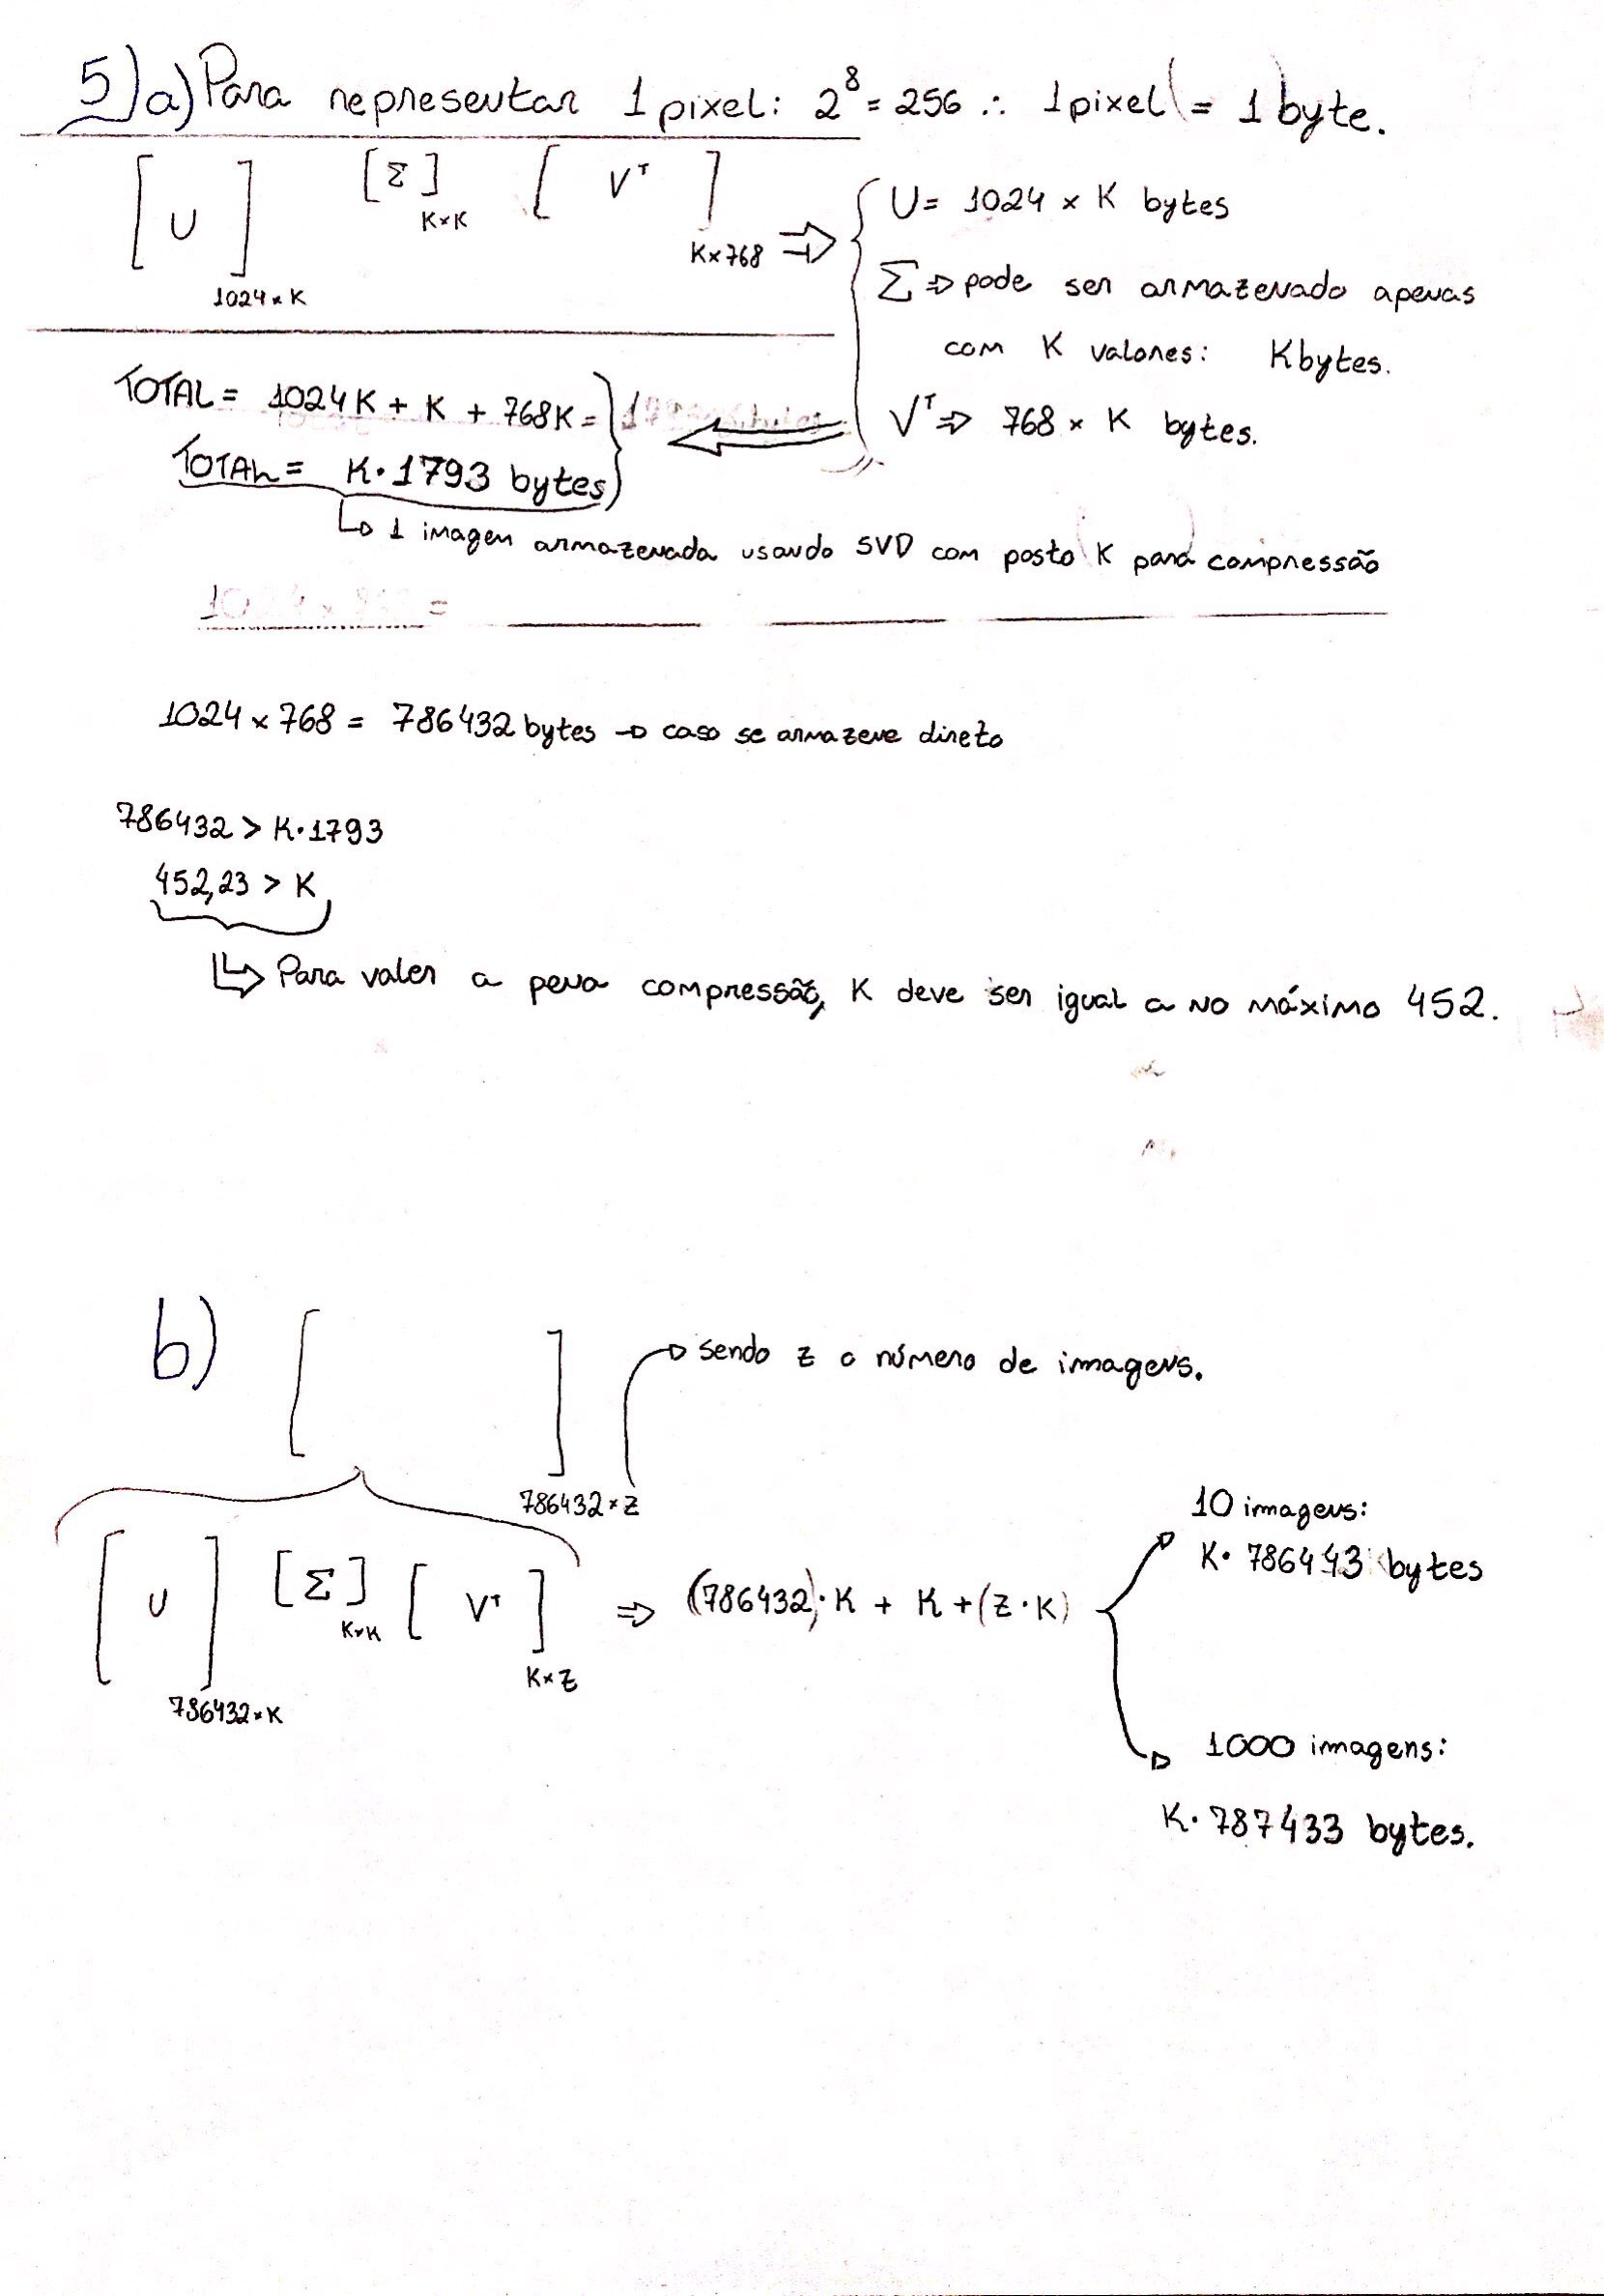 5) a) Para representar 1 pixel: 2⁸ = 256 ∴ 1 pixel = 1 byte.
[U] 1024 × K [Σ] K×K [Vᵀ] K×768 ⇒ { U = 1024 × K bytes
Σ ⇒ pode ser armazenado apenas
com K valores: K bytes.
Vᵀ ⇒ 768 × K bytes.
TOTAL = 1024K + K + 768K =
TOTAL = K·1793 bytes
↳ 1 imagem armazenada usando SVD com posto K para compressão
1024 × 768 = 786432 bytes → caso se armazene direto
786432 > K·1793
452,23 > K
↳ Para valer a pena compressão, K deve ser igual a no máximo 452.
b) [ ] 786432 × Z → sendo z o número de imagens.
[U] 786432×K [Σ] K×K [Vᵀ] K×Z ⇒ (786432)·K + K + (Z·K)
10 imagens:
K· 786443 bytes
1000 imagens:
K· 787433 bytes.